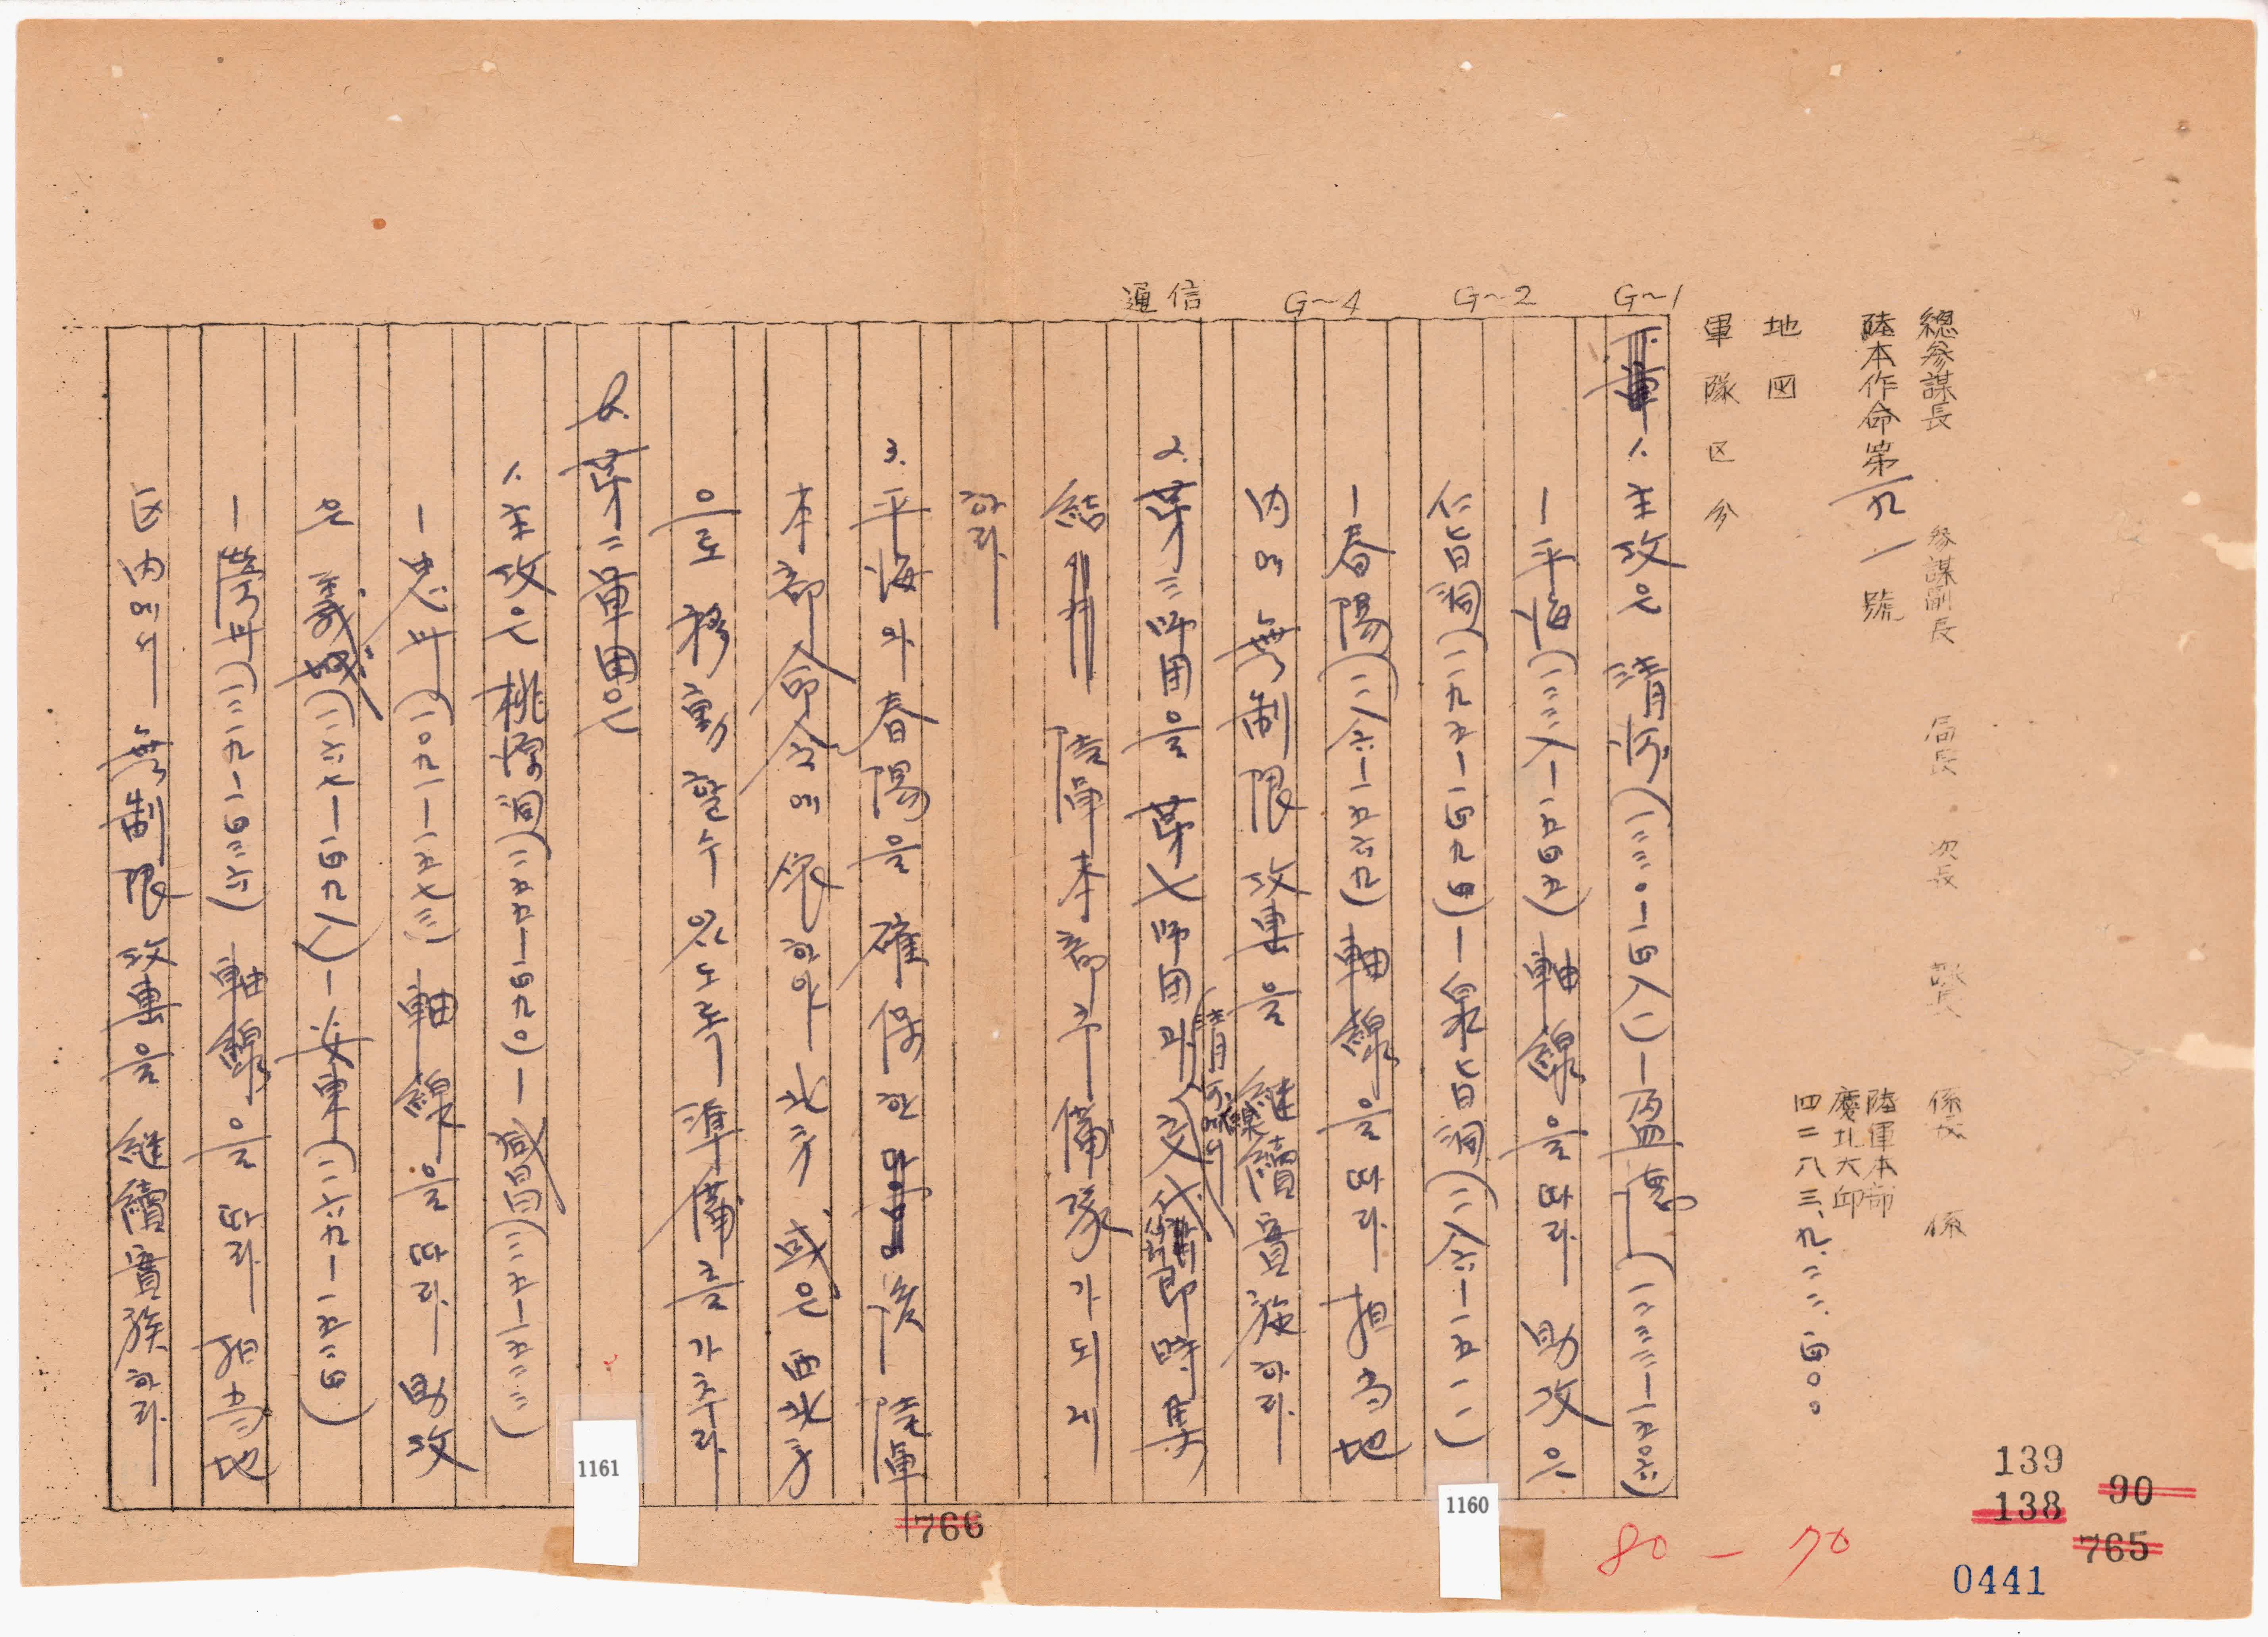 總參謀長 參謀副長 局長 次長 課長 係長 係
陸本作命第一九一號
陸軍本部
慶北大邱
四二八三、九、二二、一四〇〇
地図
軍隊区分
G~1
G~2
G~4
通信
1. 主攻은 淸河(一二三〇-一四八一)-盈德(一二三三-一五〇六)
-平海(一二三八-一五四五) 軸線을 따라 助攻은
仁旨洞(一一九五-一四九四)-泉旨洞(一一八六-一五一一)
-春陽(一一八六-一五六九) 軸線을 따라 担当地
內에 無制限 攻擊을 繼續實施하라
2. 第三師団을 第七師団과 淸河線에서 交代 即時 集
結 陸軍本部予備隊가되게
하라
3. 平海와 春陽을 確保한 後 陸軍
本部命令에 依하야 北方 或은 西北方
으로 移動할수있도록 準備를 가추라
B. 第二軍団은
1. 主攻은 桃潭洞(一一五五-一四九〇)-咸昌(一一三五-一五二三)
-忠州(一〇九一-一五七三) 軸線을 따라 助攻
은 義城(一一六七-一四九八)-安東(一一六九-一五二四)
-榮州(一一五九-一五三六) 軸線을 따라 担当地
区內에서 無制限 攻擊을 継續實施하라
1161
1160
766
139
138
90
765
80 - 70
0441